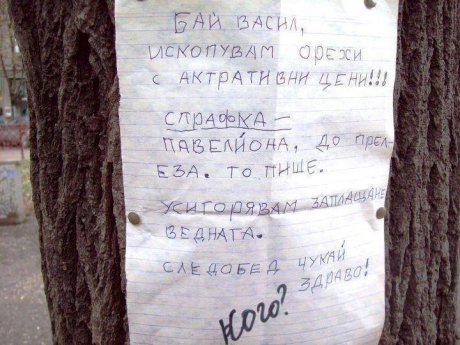 БАЙ ВАСИЛ,
ИСКОПУВАМ ОРЕХИ
С АКТРАТИВНИ ЦЕНИ!!!
СПРАФКА –
ПАВЕЛЙОНА, ДО ПРЕЛ-
ЕЗА. ТО ПИШЕ.
УСИГОРЯВАМ ЗАПЛАЩАНЕ
ВЕДНАГА.
СЛЕДОБЕД ЧУКАЙ
ЗДРАВО!
Кого?